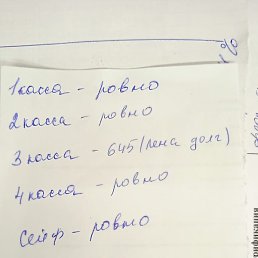 1 касса - ровно
2 касса - ровно
3 касса - 645 (лена долг)
4 касса - ровно
Сейф - ровно